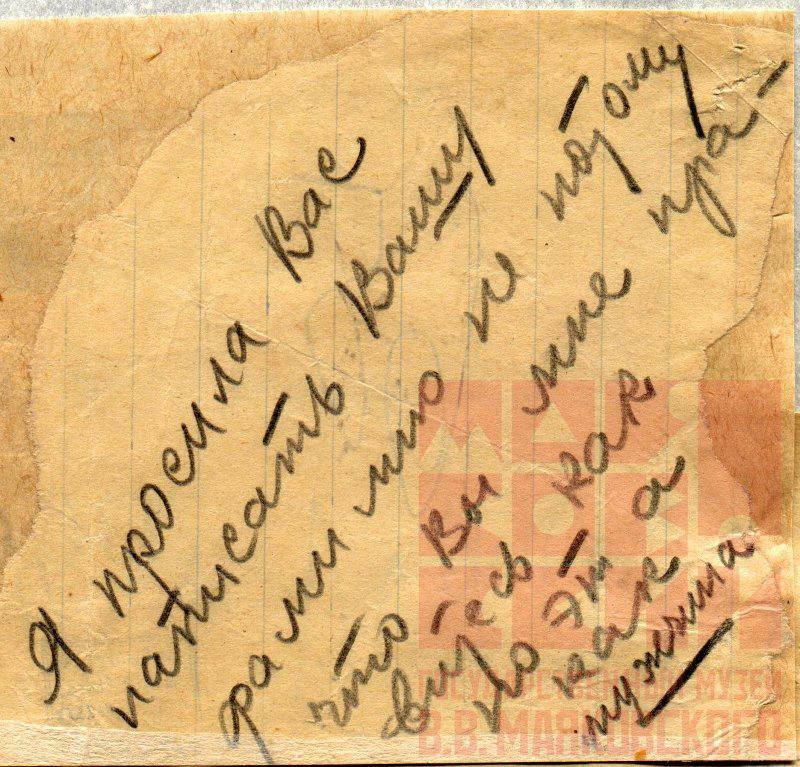 Я просила Вас
написать Вашу
фамилию не потому
что Вы мне нра-
витесь как
поэт а
как
мужчина
ГОСУДАРСТВЕННЫЙ МУЗЕЙ
В.В. МАЯКОВСКОГО